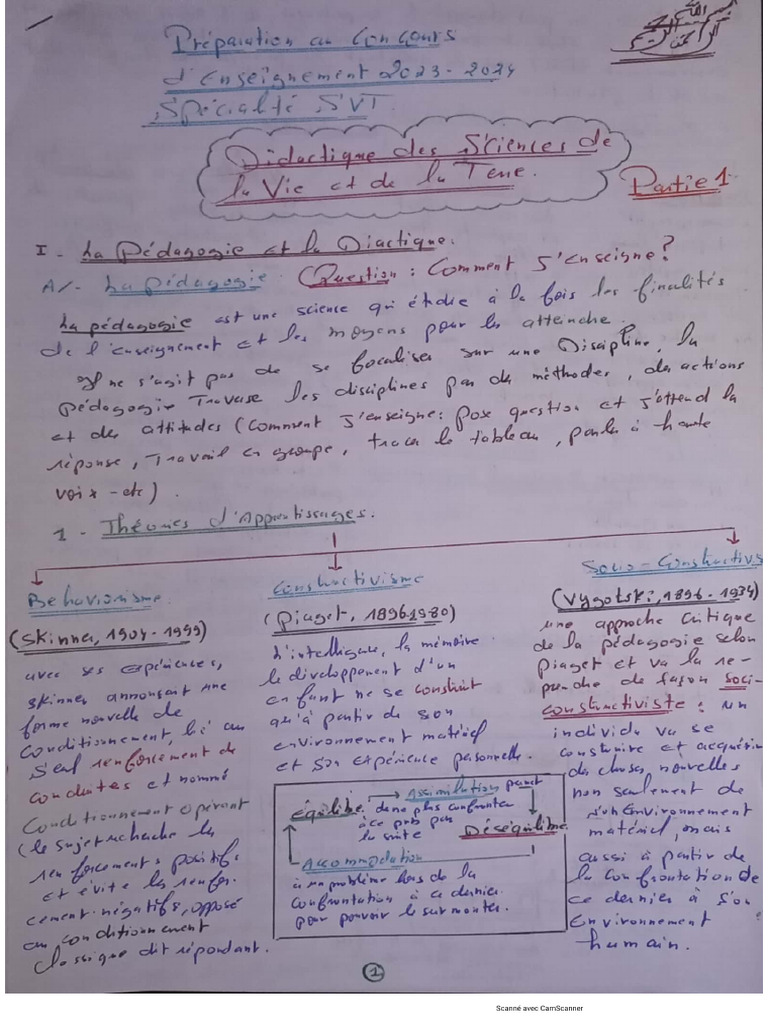 Préparation au Concours
d'Enseignement 2023-2024
Spécialité SVT
Didactique des Sciences de
la Vie et de la Terre.
Partie 1
I - La Pédagogie et la Diactique.
A/- La pédagogie (Question : Comment s'enseigne?
La pédagogie est une science qui étudie à la fois les finalités
de l'enseignement et les moyens pour les atteindre.
Il ne s'agit pas de se focaliser sur une Discipline, la
pédagogie Traverse les disciplines par des méthodes, des actions
et des attitudes (Comment s'enseigne: pose question et s'attend la
réponse, Travail en groupe, tracer le tableau, parler à haute
voix - etc).
1 - Théories d'Apprentissages.
Behaviorisme.
(Skinner, 1904-1999)
avec ses expériences,
Skinner annonçait une
forme nouvelle de
conditionnement, lié au
seul renforcement de
conduites et nommé
Conditionnement opérant
(le sujet recherche les
renforcements positifs
et évite les renfor-
cement négatifs, opposé
au conditionnement
classique dit répondant.
Constructivisme
(Piaget, 1896-1980)
L'intelligence, la mémoire
le développement d'un
enfant ne se construit
qu'à partir de son
environnement matériel
et son expérience personnelle.
équilibre
Assimilation
de ne plus confronter
à ce
la suite
Déséquilibre
Accommodation
à un problème lors de la
confrontation à ce dernier
pour pouvoir le surmonter.
Socio-Constructivis
(Vygotski, 1896-1934)
une approche critique
de la pédagogie selon
Piaget et va la re-
prendre de façon soci-
constructiviste : un
individu va se
construire et acquérir
des choses nouvelles
non seulement de
son Environnement
matériel, mais
aussi à partir de
la confrontation de
ce dernier à son
Environnement
humain.
1
Scanné avec CamScanner